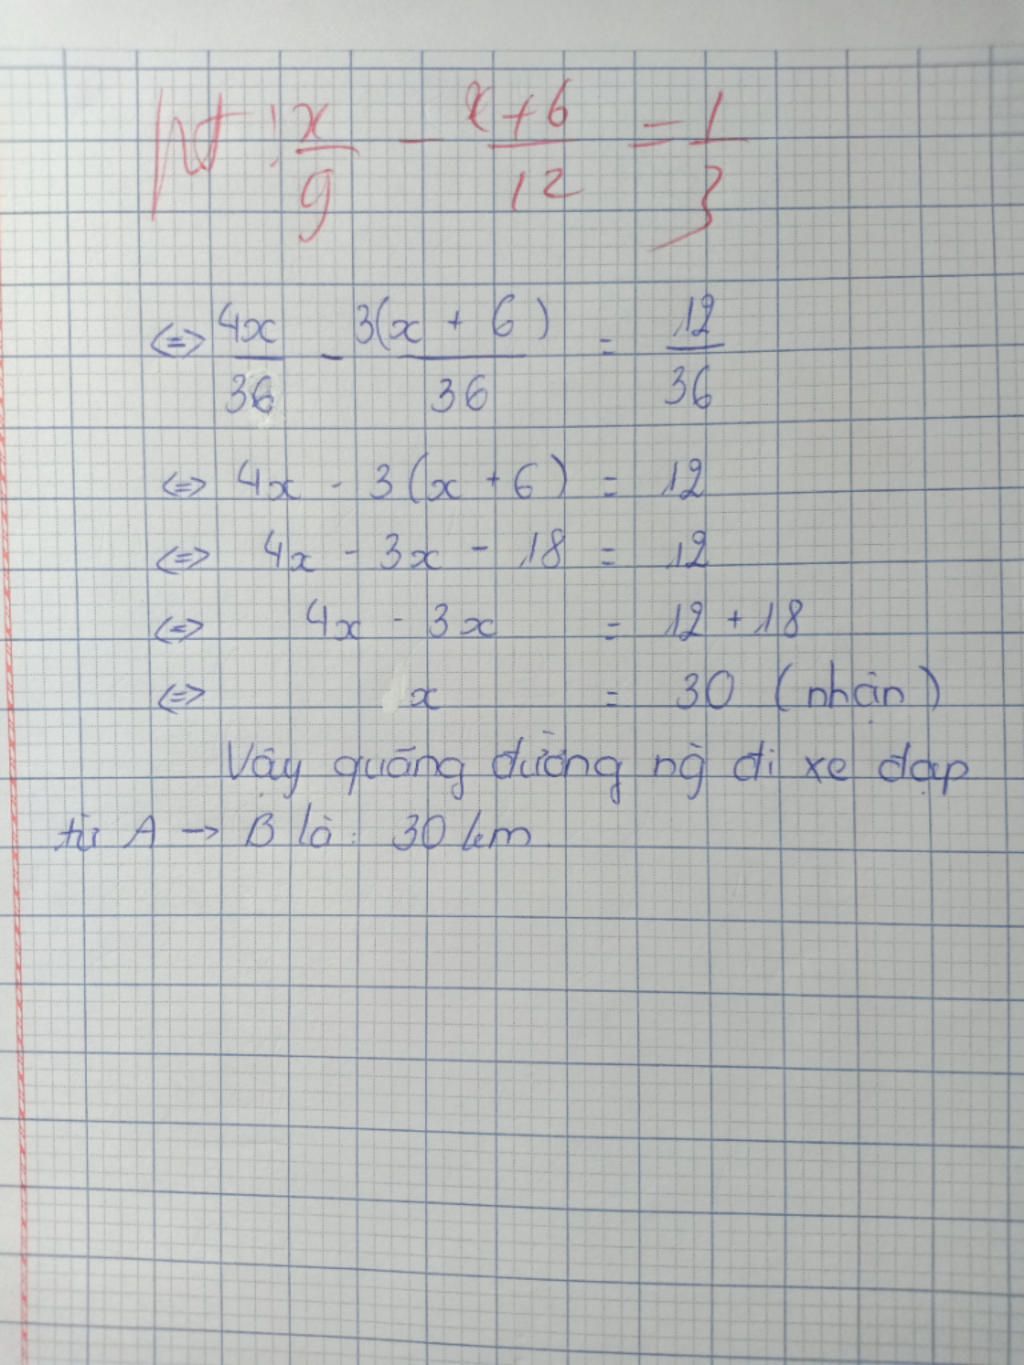 pt: x/9 - x+6/12 = 1/3
<=> 4x/36 - 3(x + 6)/36 = 12/36
<=> 4x - 3(x + 6) = 12
<=> 4x - 3x - 18 = 12
<=> 4x - 3x = 12 + 18
<=> x = 30 (nhận)
Vậy quãng đường ng đi xe đạp
từ A → B là: 30 km